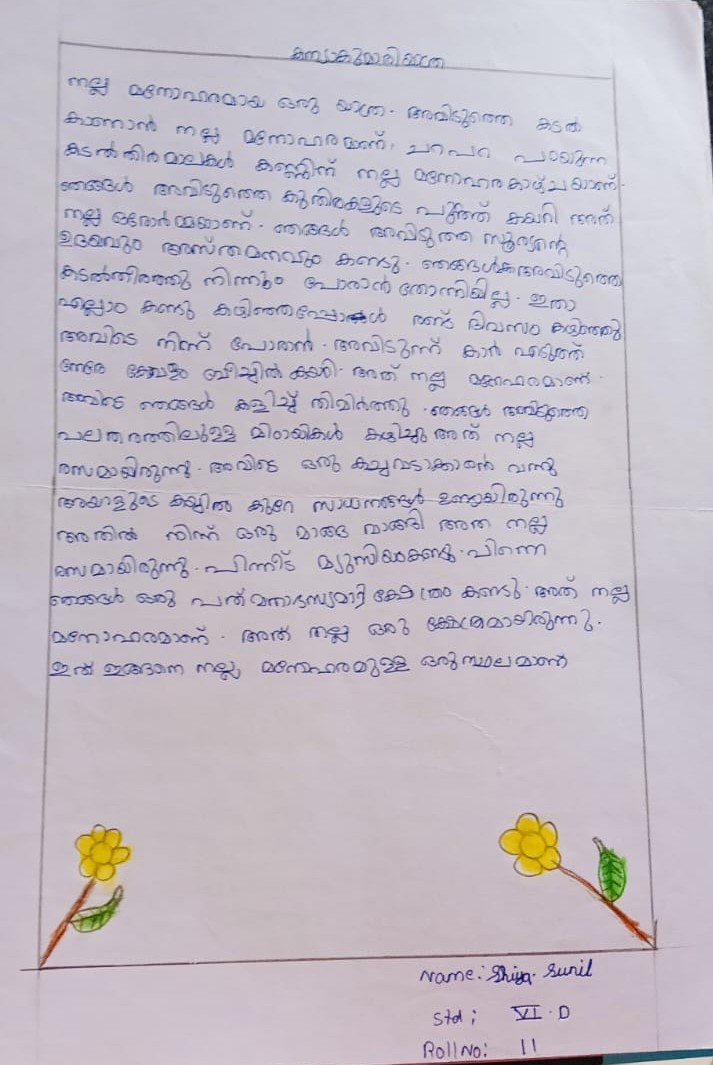 കന്യാകുമാരിയാത്ര
നല്ല മനോഹരമായ ഒരു യാത്ര. അവിടുത്തെ കടൽ
കാണാൻ നല്ല മനോഹരമാണ്, ചറപറ പായുന്ന
കടൽതിരമാലകൾ കണ്ണിന് നല്ല മനോഹരകാഴ്ചയാണ്.
ഞങ്ങൾ അവിടുത്തെ കുതിരകളുടെ പുറത്ത് കയറി അത്
നല്ല ഒരോർമ്മയാണ്. ഞങ്ങൾ അവിടുത്ത സൂര്യന്റെ
ഉദയവും അസ്തമനവും കണ്ടു. ഞങ്ങൾക്ക് അവിടുത്തെ
കടൽതിരത്തു നിന്നും പോരാൻ തോന്നിയില്ല. ഇതാ
എല്ലാം കണ്ടു കഴിഞ്ഞപ്പോൾ രണ്ട് ദിവസം കഴിഞ്ഞു
അവിടെ നിന്ന് പോരാൻ. അവിടുന്ന് കാർ എടുത്ത്
നേരേ കോവളം ബീച്ചിൽ കയറി. അത് നല്ല മനോഹരമാണ്.
അവിടെ ഞങ്ങൾ കളിച്ച് തിമിർത്തു. ഞങ്ങൾ അവിടുത്തെ
പലതരത്തിലുള്ള മിഠായികൾ കഴിച്ചു അത് നല്ല
രസമായിരുന്നു. അവിടെ ഒരു കച്ചവടാക്കാരൻ വന്നു
അയാളുടെ കയ്യിൽ കുറേ സാധനങ്ങൾ ഉണ്ടായിരുന്നു
അതിൽ നിന്ന് ഒരു മാങ്ങ വാങ്ങി അത നല്ല
രസമായിരുന്നു. പിന്നീട് മ്യുസിയംകണ്ടു. പിന്നെ
ഞങ്ങൾ ഒരു പത്മനാഭസ്വാമി ക്ഷേത്രം കണ്ടു. അത് നല്ല
മനോഹരമാണ്. അത് നല്ല ഒരു ക്ഷേത്രമായിരുന്നു.
ഇത് ഇങ്ങനെ നല്ല മനോഹരമുള്ള ഒരു സ്ഥലമാണ്
Name: Shiya Sunil
Std: VI.D
Roll No: 11